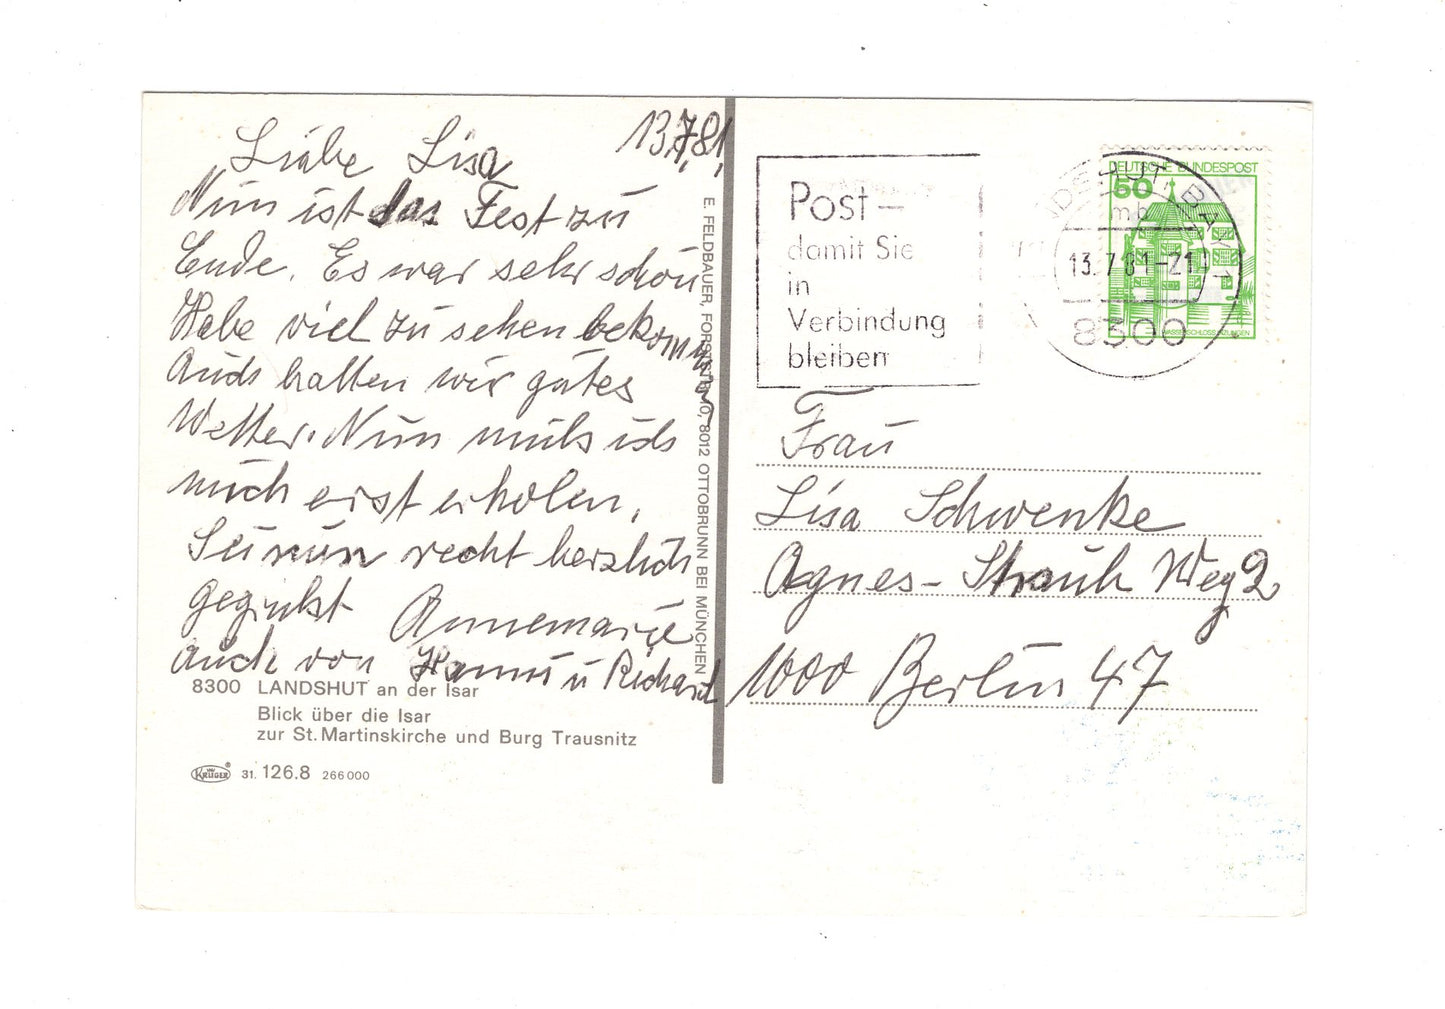 13.7.81.
Liebe Lisa
Nun ist das Fest zu
Ende. Es war sehr schön
Habe viel zu sehen bekommen
Auch hatten wir gutes
Wetter. Nun muß ich
mich erst erholen.
Sei nun recht herzlich
gegrüßt Annemarie
auch von Hanni u Richard
8300 LANDSHUT an der Isar
Blick über die Isar
zur St. Martinskirche und Burg Trausnitz
KRÜGER 31. 126.8 266000
E. FELDBAUER, 10, 8012 OTTOBRUNN BEI MÜNCHEN
Post –
damit Sie
in
Verbindung
bleiben
DEUTSCHE BUNDESPOST
50
LANDSHUT, BAY 1
13.7.81-21
8300
Frau
Lisa Schwenke
Agnes-Strauch Weg 2
1000 Berlin 47